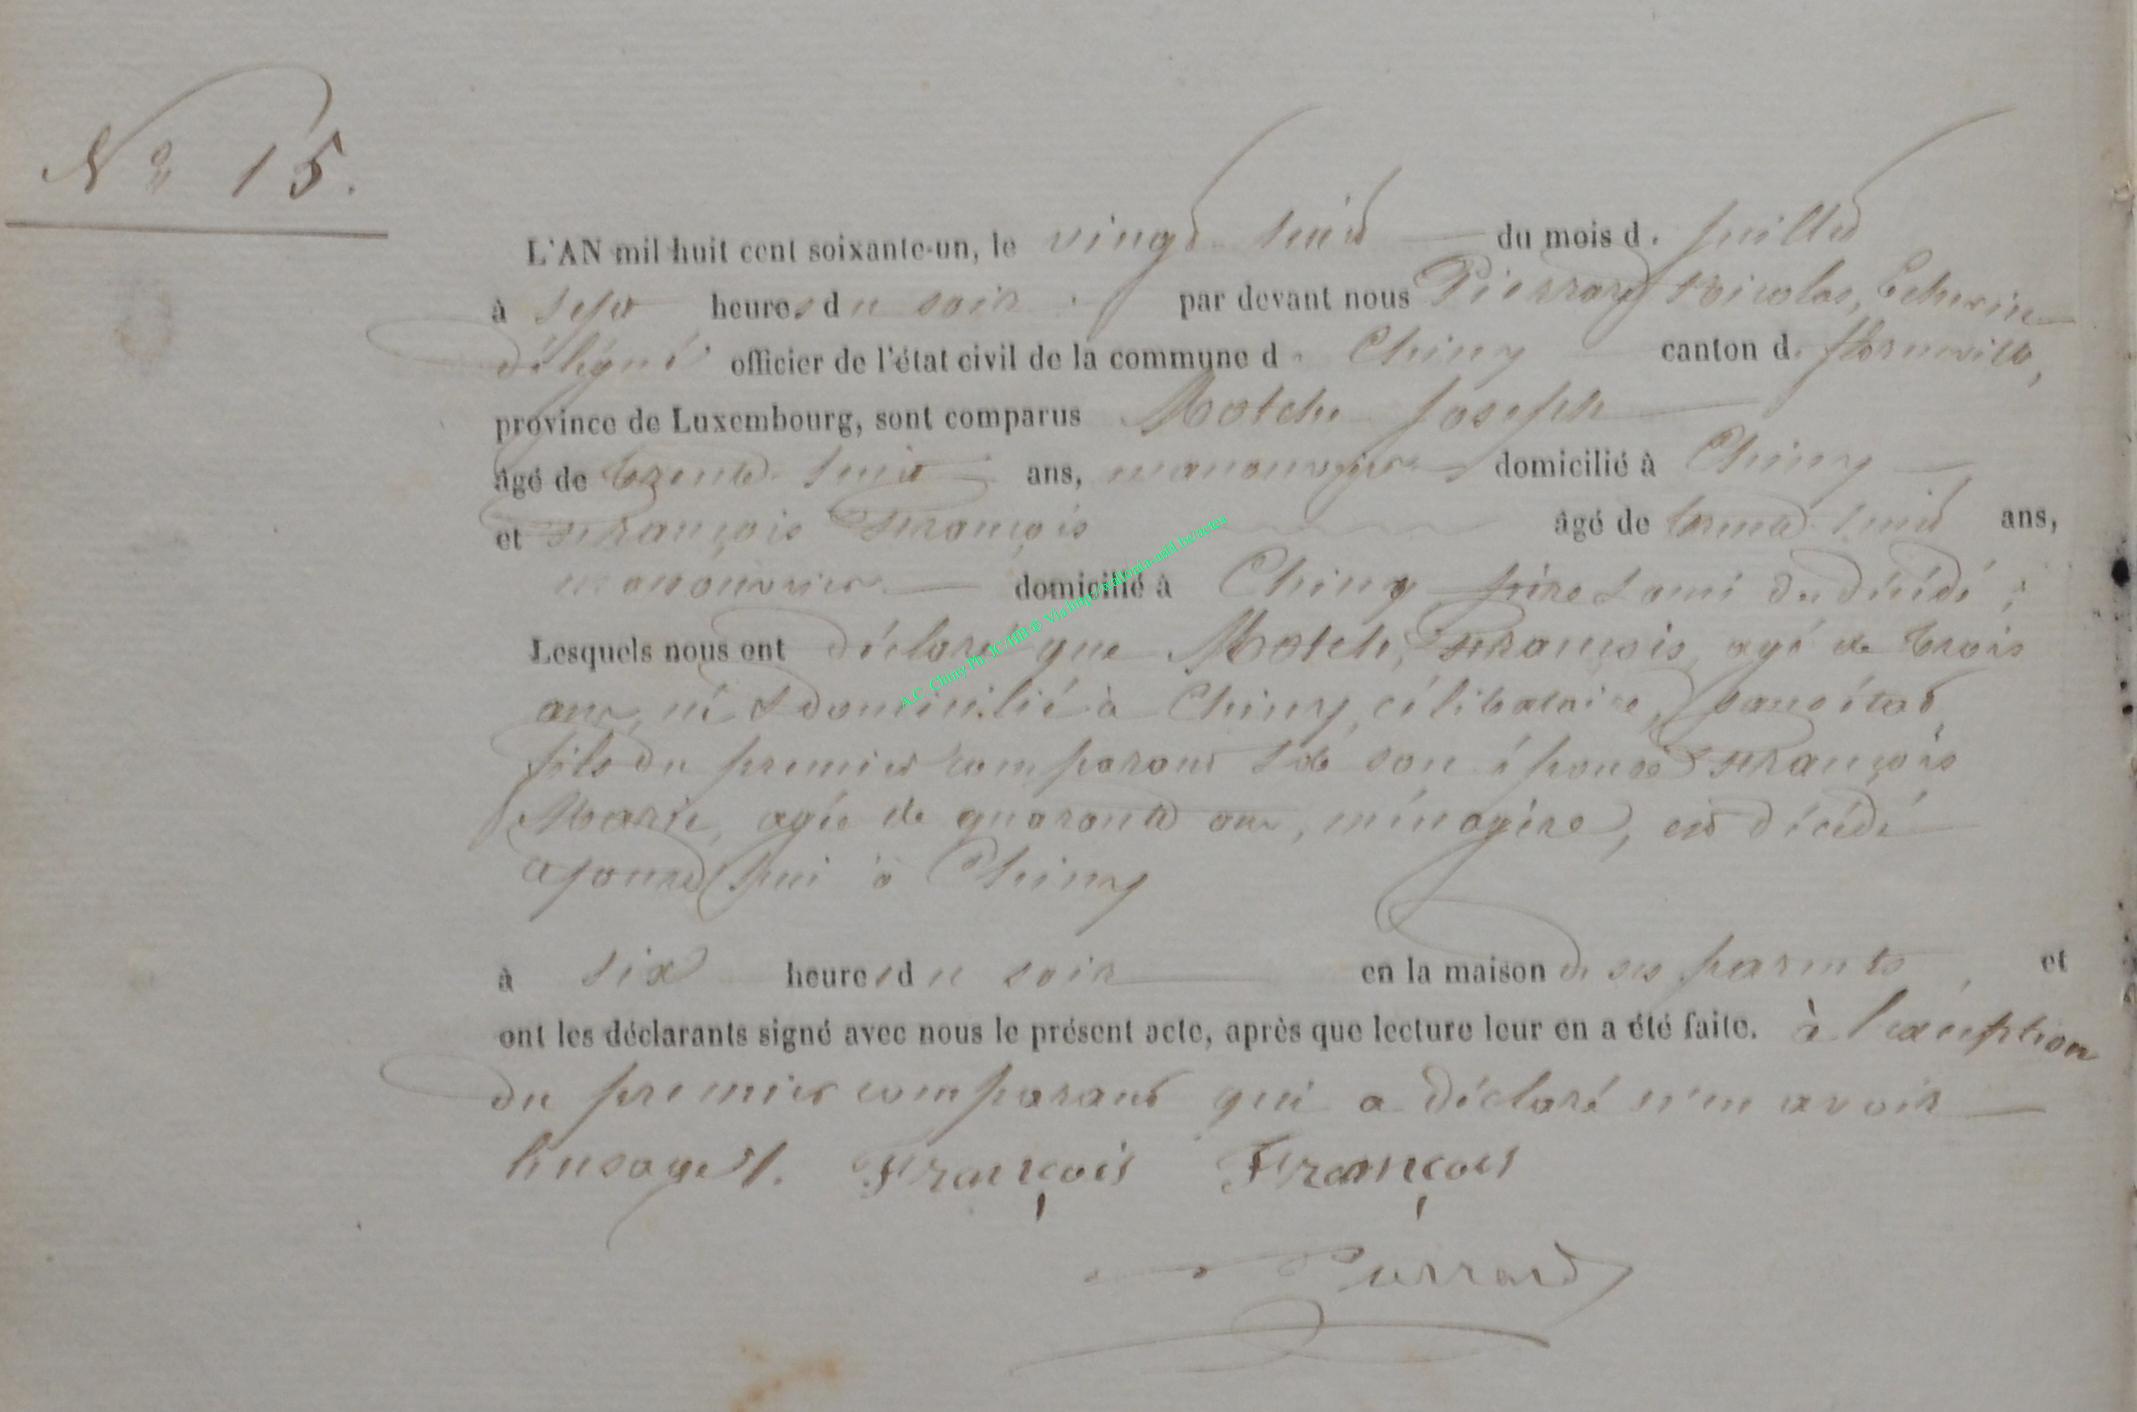 N° 15.
L'AN mil huit cent soixante-un, le vingt huit du mois d. juillet
à sept heures du soir par devant nous Pierrard Nicolas, Echevin
délégué officier de l'état civil de la commune d. Chiny canton d. florenville,
province de Luxembourg, sont comparus Motch Joseph
âgé de trente huit ans, manouvrier domicilié à Chiny
et François François âgé de trente huit ans,
manouvrier domicilié à Chiny père & ami du décédé;
Lesquels nous ont déclaré que Motch, François, agé de trois
ans, né & domicilié à Chiny, célibataire, sans état,
fils du premier comparant & de son épouse François
Marie, agée de quarante ans, ménagère, est décédé
ajourd'hui à Chiny
à six heures du soir en la maison de ses parents, et
ont les déclarants signé avec nous le présent acte, après que lecture leur en a été faite. à l'exception
du premier comparant qui a déclaré n'en avoir
l'usage. François François
Pierrard
A.C. Chiny Ph. JC-HB © Via http://